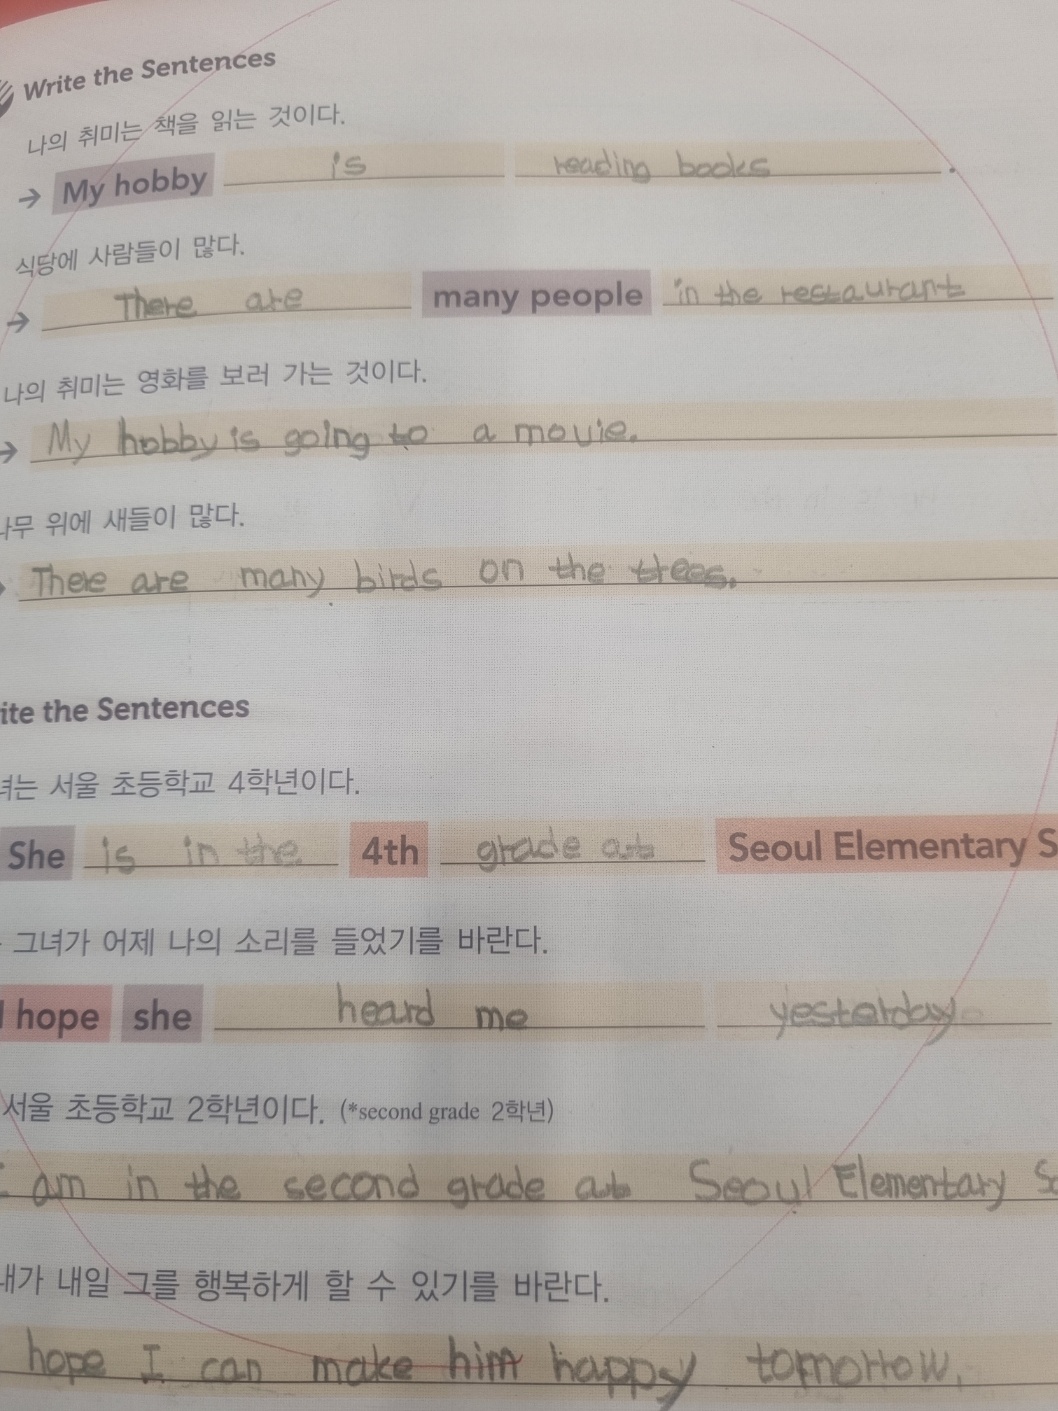 Write the Sentences
나의 취미는 책을 읽는 것이다.
→ My hobby is reading books.
식당에 사람들이 많다.
→ There are many people in the restaurant
나의 취미는 영화를 보러 가는 것이다.
→ My hobby is going to a movie.
나무 위에 새들이 많다.
There are many birds on the trees.
ite the Sentences
녀는 서울 초등학교 4학년이다.
She is in the 4th grade at Seoul Elementary S
그녀가 어제 나의 소리를 들었기를 바란다.
I hope she heard me yesterday
서울 초등학교 2학년이다. (*second grade 2학년)
I am in the second grade at Seoul Elementary Sc
내가 내일 그를 행복하게 할 수 있기를 바란다.
hope I can make him happy tomorrow.